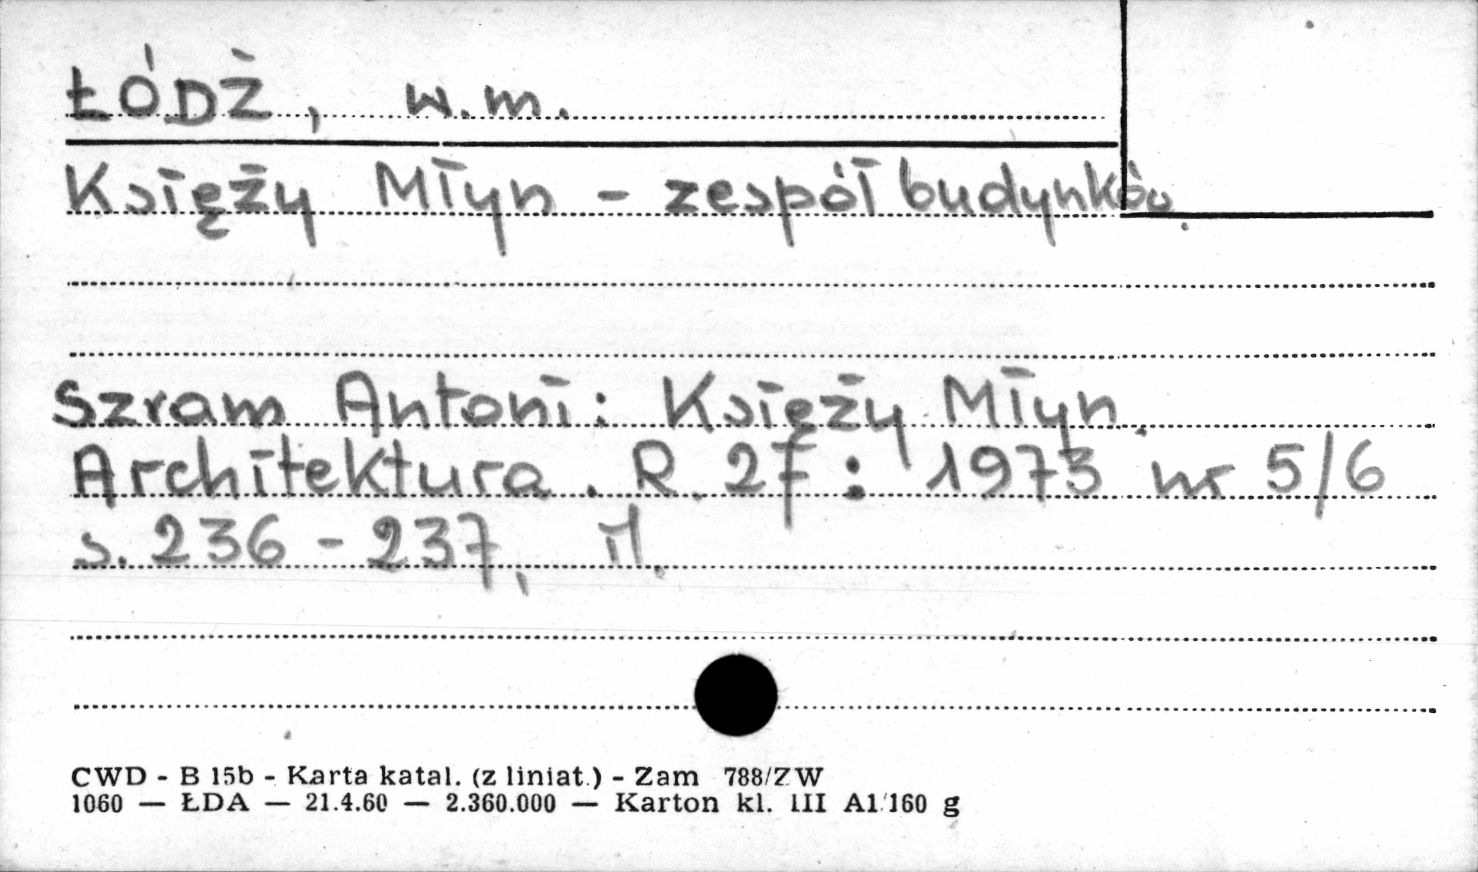 ŁÓDŹ, w.m.
Księży Młyn - zespół budynków.
Szram Antoni: Księży Młyn.
Architektura. R. 27: 1973 nr 5/6
s. 236 - 237, il.
CWD - B 15b - Karta katal. (z liniat.) - Zam 788/ZW
1060 — ŁDA — 21.4.60 — 2.360.000 — Karton kl. III A1/160 g